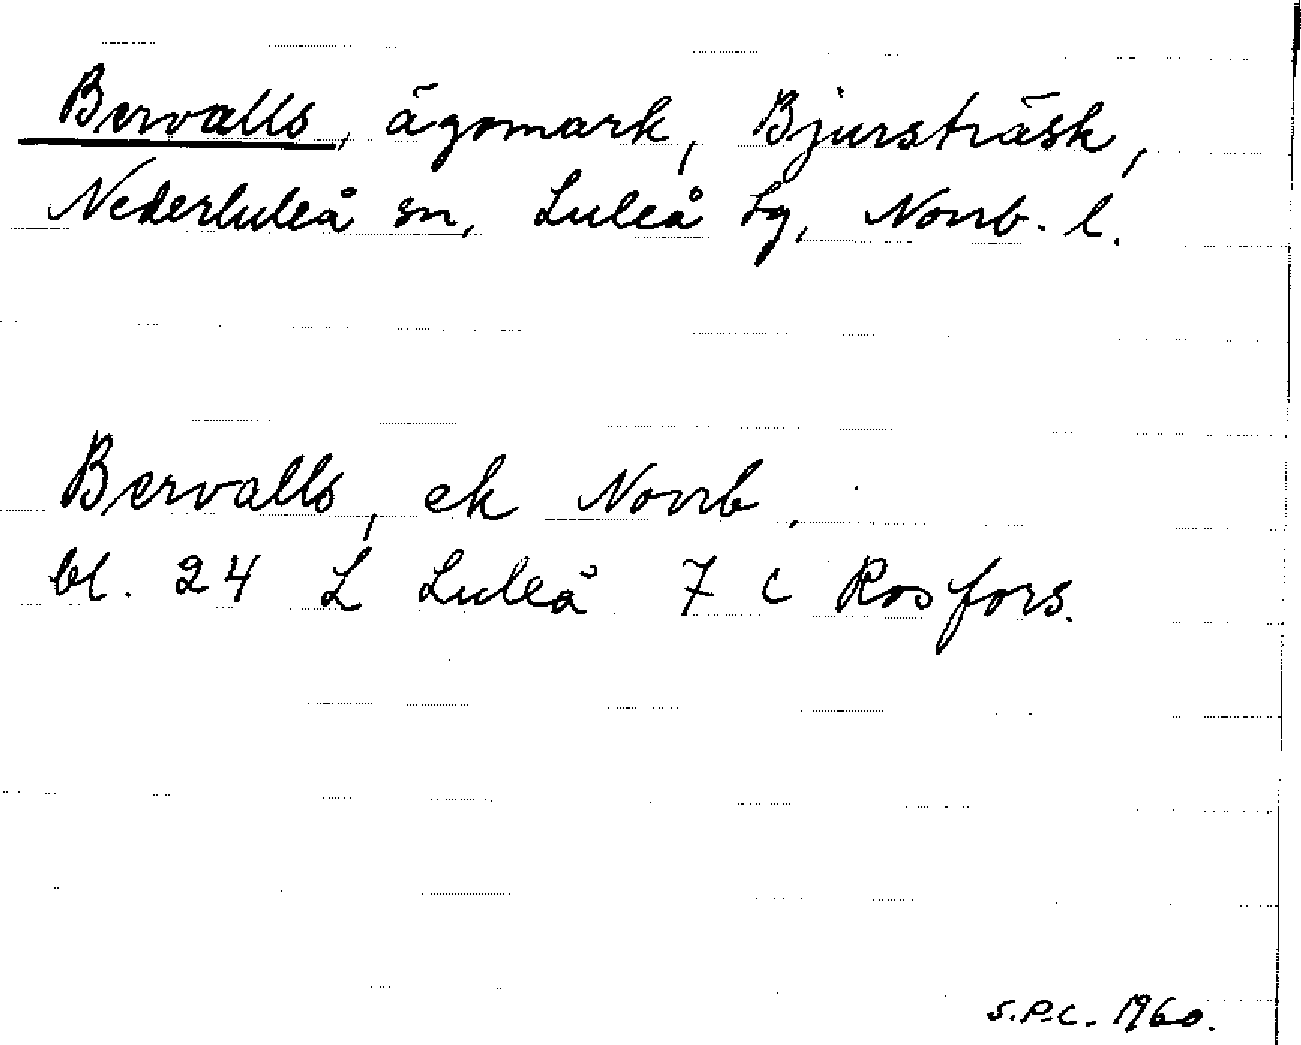 Bervalls, ägomark, Bjursträsk,
Nederluleå sn, Luleå tg, Norrb. l.
Bervalls, ek Norrb.
bl. 24 L Luleå 7 c Rosfors.
S.P.C. 1960.